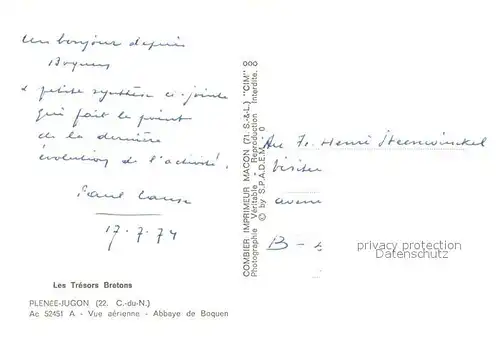 un bonjour depuis
Boquen
& petite synthèse ci-jointe
qui fait le point
de la dernière
évolution de l'activité.
Paul
17.7.74
Les Trésors Bretons
PLENEE-JUGON (22. C.-du-N.)
Ac 52451 A - Vue aérienne - Abbaye de Boquen
COMBIER IMPRIMEUR MACON (71. S.-&-L.) "CIM"
Photographie Véritable - Reproduction Interdite.
© by S.P.A.D.E.M. - 0
Au Fr. Henri Steenwinckel
Visiter
avenu
B -
privacy protection
VERITABLE